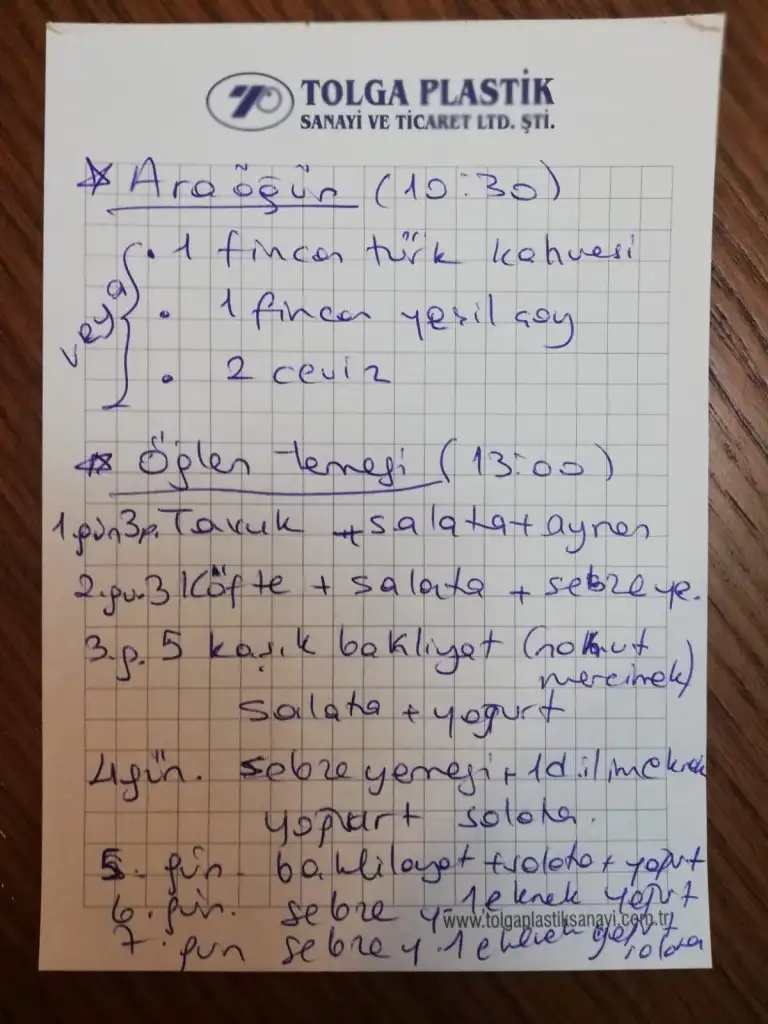 TOLGA PLASTİK
SANAYİ VE TİCARET LTD. ŞTİ.
Ara öğün (10:30)
veya
1 fincan türk kahvesi
1 fincan yeşil çay
2 ceviz
Öğlen yemeği (13:00)
1.gün 3p. Tavuk + salata + ayran
2.gü. 3 Köfte + salata + sebze ye.
3.g. 5 kaşık bakliyat (nohut
mercimek)
salata + yoğurt
4gün. sebze yemeği + 1 dilim ekmek
yoğurt salata.
5. gün. baklilayat + salata + yoğurt
6. gün. sebze y. 1 ekmek yoğurt
www.tolgaplastiksanayi.com.tr
7. gun sebze y. 1 ekmek yoğurt
salata